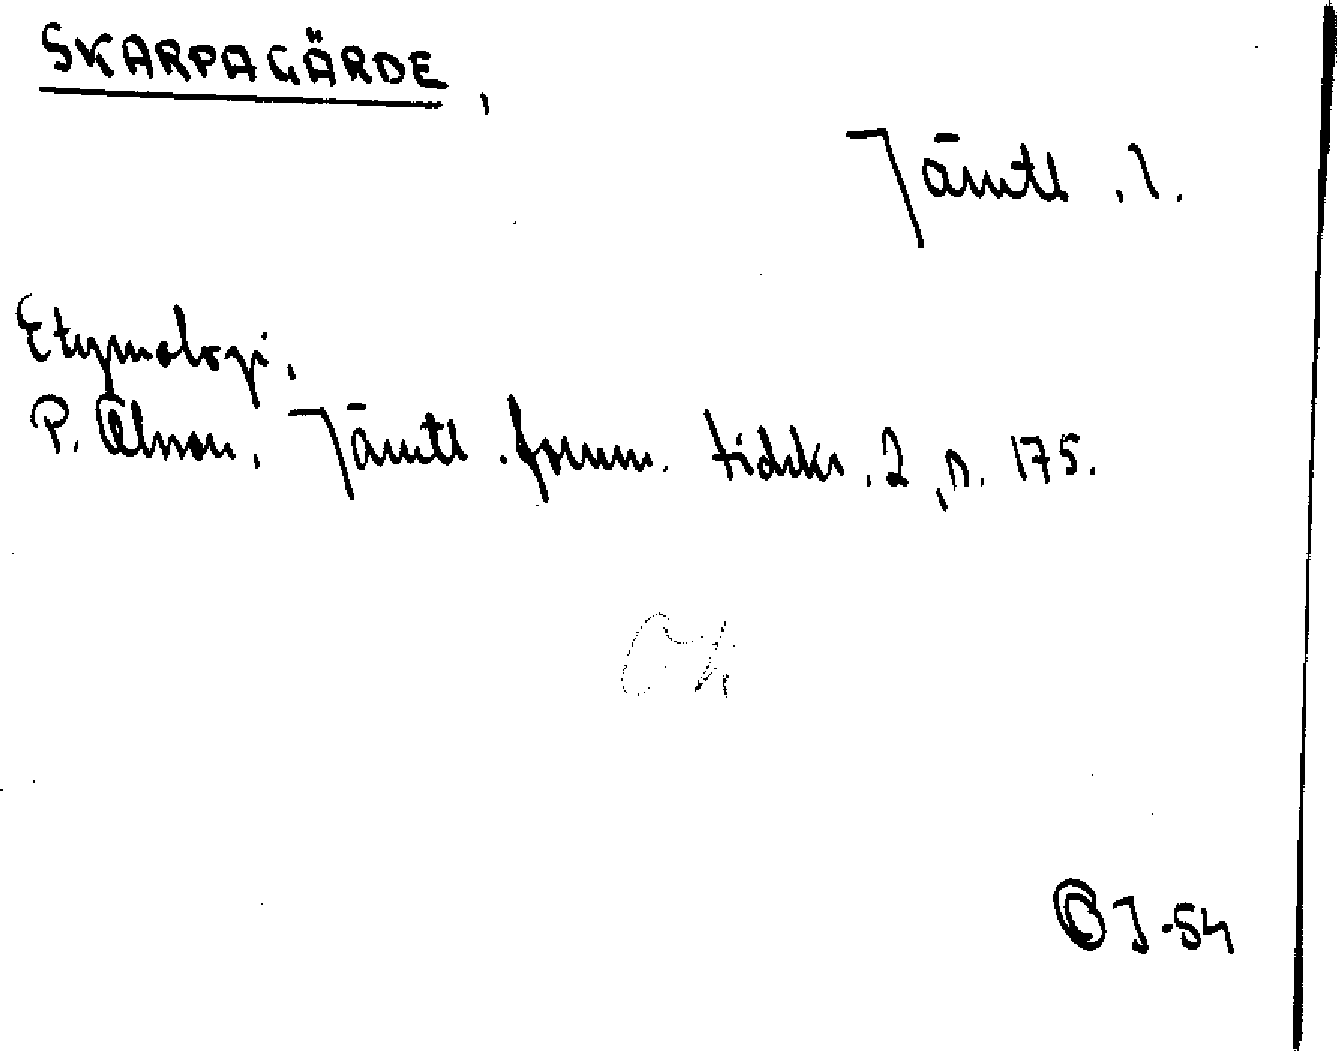 SKARPAGÄRDE,
Jämtl. l.
Etymologi.
P. Olsson, Jämtl. fornm. tidskr. 2, s. 175.
OJ-54